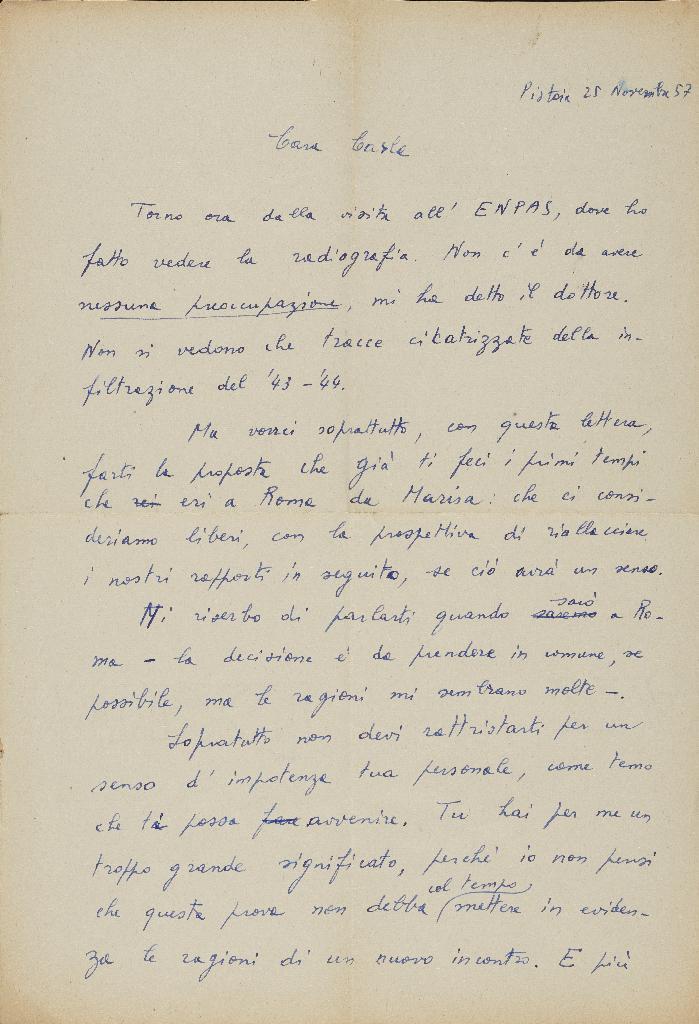 Pistoia 25 Novembre 57
Cara Carla
Torno ora dalla visita all' ENPAS, dove ho
fatto vedere la radiografia. Non c'è da avere
nessuna preoccupazione, mi ha detto il dottore.
Non si vedono che tracce cicatrizzate della in-
filtrazione del '43 - '44.
Ma vorrei soprattutto, con questa lettera,
farti la proposta che già ti feci i primi tempi
che sei eri a Roma da Marisa: che ci consi-
deriamo liberi, con la prospettiva di riallacciare
i nostri rapporti in seguito, se ciò avrà un senso.
Mi riserbo di parlarti quando saremo sarò a Ro-
ma - la decisione è da prendere in comune, se
possibile, ma le ragioni mi sembrano molte -.
Sopratutto non devi rattristarti per un
senso d' impotenza tua personale, come temo
che ti possa fare avvenire. Tu hai per me un
troppo grande significato, perché io non pensi
che questa prova non debba col tempo mettere in eviden-
za le ragioni di un nuovo incontro. E più